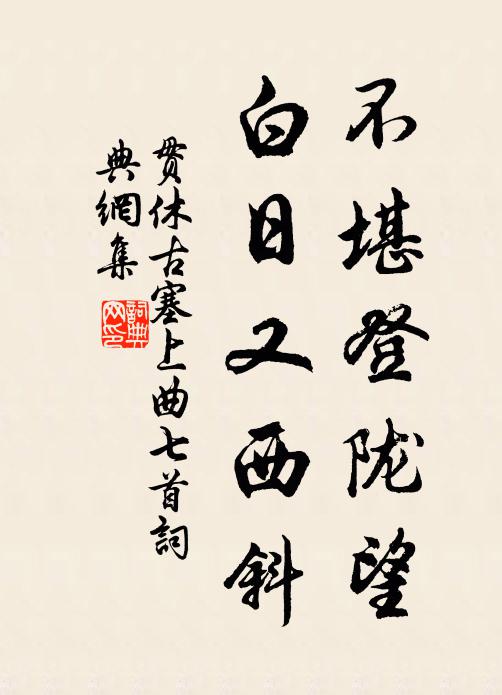 不堪登陇望
白日又西斜
贯休古塞上曲七首詞
典網集
詞典網印